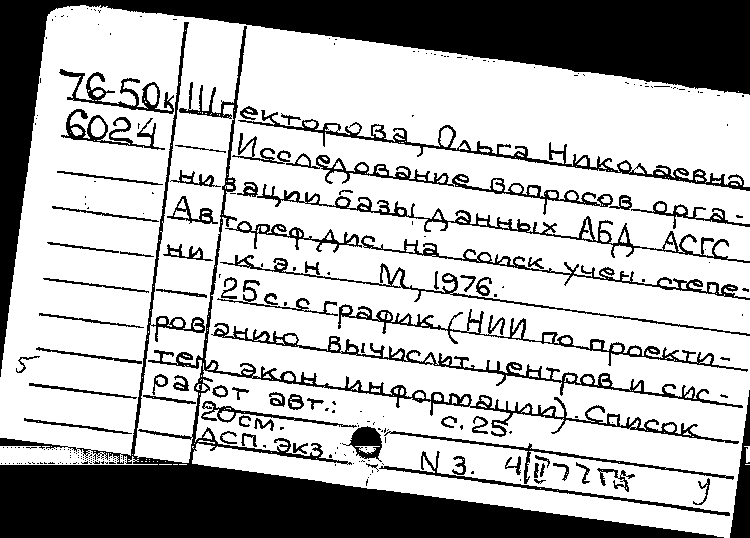 76-50к Шпекторова, Ольга Николаевна
6024 Исследование вопросов орга-
низации базы данных АБД АСГС
Автореф. дис. на соиск. учен. степе-
ни к.э.н. М., 1976.
25 с. с график. (НИИ по проекти-
рованию вычислит. центров и сис-
тем экон. информации). Список
работ авт.: с. 25.
20см.
ДСП. экз. N 3. 4/II 77
у
5